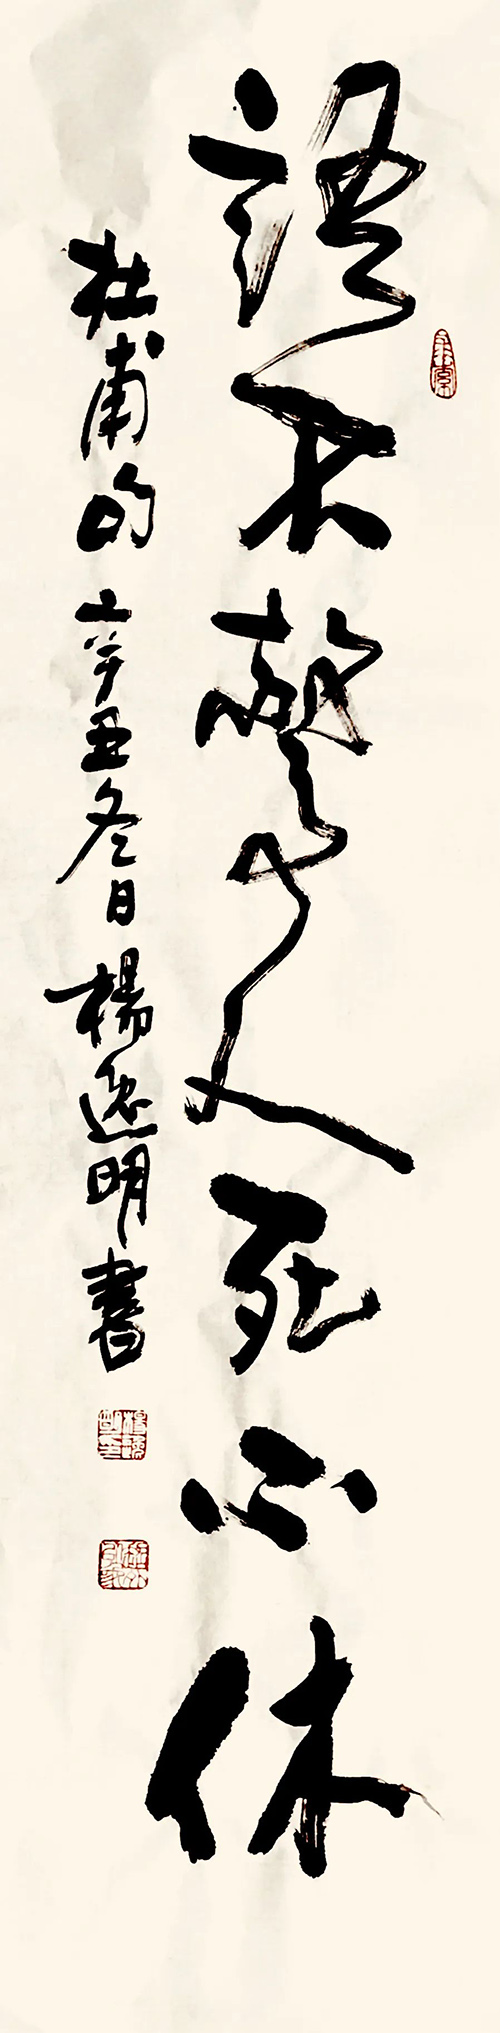 語不驚人死不休
杜甫句 辛丑冬日 楊逸明書